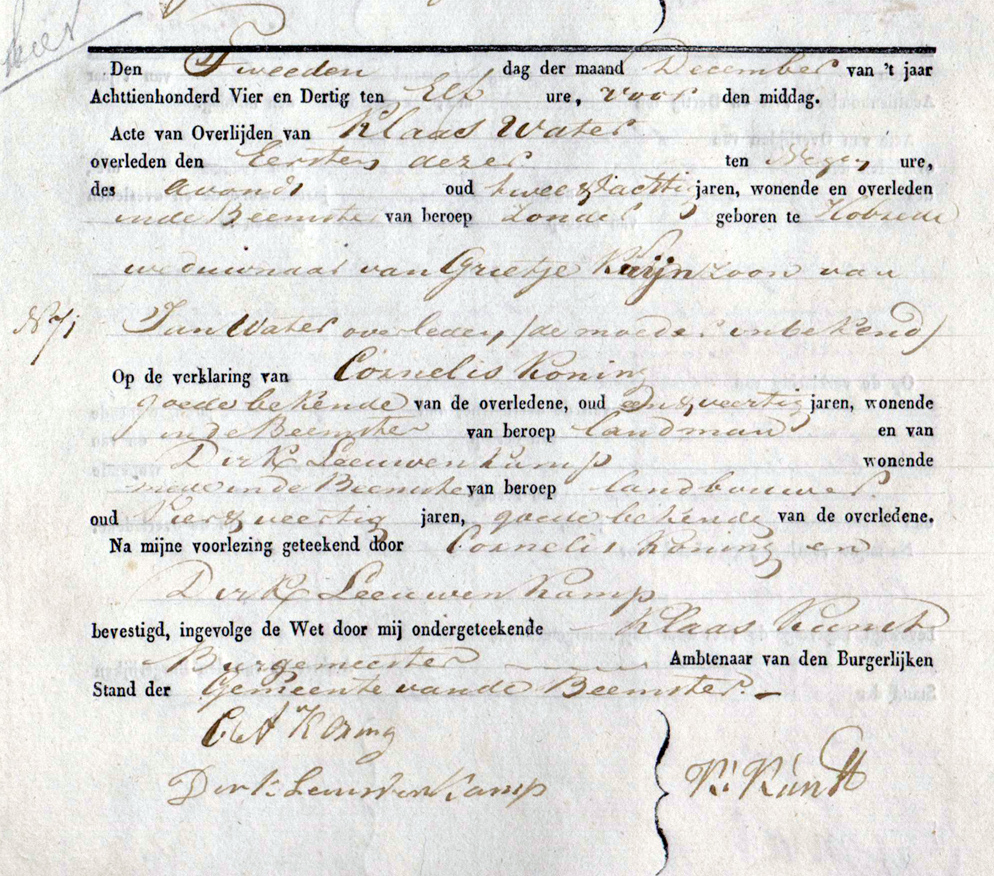 Den Tweeden dag der maand December van 't jaar
Achttienhonderd Vier en Dertig ten Elf ure, voor den middag.
Acte van Overlijden van Klaas Water
overleden den Eersten dezer ten Negen ure,
des avonds oud twee & tachtig jaren, wonende en overleden
in de Beemster van beroep zonder geboren te
weduwnaar van Grietje Kuijn zoon van
No 71 Jan Water overleden, (de moeder onbekend)
Op de verklaring van Cornelis Koning
goede bekende van de overledene, oud en veertig jaren, wonende
in de Beemster van beroep landman en van
Dirk Leeuwenkamp wonende
mede in de Beemster van beroep landbouwer.
oud vier & veertig jaren, goede bekende van de overledene.
Na mijne voorlezing geteekend door Cornelis Koning en
Dirk Leeuwenkamp
bevestigd, ingevolge de Wet door mij ondergeteekende Klaas Kunst
Burgemeester Ambtenaar van den Burgerlijken
Stand der Gemeente van de Beemster.
Koning
Dirk Leeuwenkamp K. Kunst